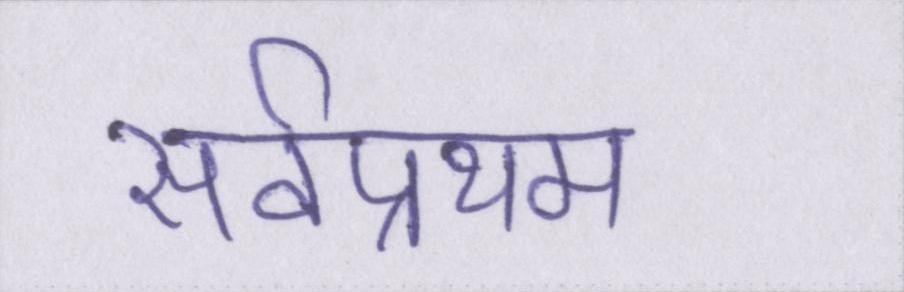 सर्वप्रथम